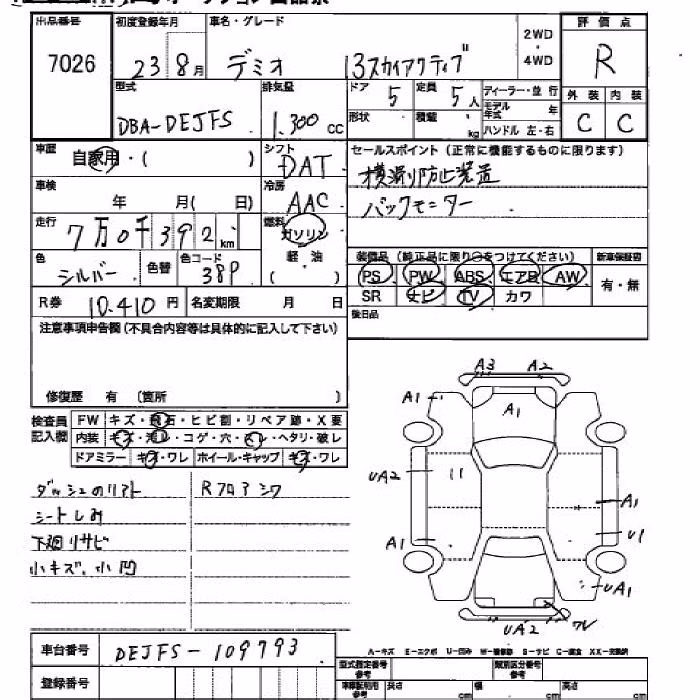 出品番号 初度登録年月 車名・グレード 2WD ・ 4WD 評価点
7026 23 8月 デミオ 13スカイアクティブ R
型式 排気量 ドア 定員 ディーラー・並行 外装 内装
DBA-DEJFS 1.300 cc 5 5人 モデル年式 年 C C
形状 積載 kg ハンドル 左・右
車歴 自家用・( ) シフト DAT セールスポイント(正常に機能するものに限ります)
横滑り防止装置
車検 年 月( 日) 冷房 AAC バックモニター
走行 7万0千392km 燃料 ガソリン
軽・油
( )
装備品(純正品に限り○をつけてください) 新車保証書
色 シルバー 色替 色コード 38P PS PW ABS エアB AW 有・無
SR ナビ TV カワ
R券 10.410円 名変期限 月 日 後日品
注意事項申告欄(不具合内容等は具体的に記入して下さい)
修復歴 有 (箇所 )
検査員記入欄 FW キズ・飛石・ヒビ割・リペア跡・X要
内装 キズ・汚レ・コゲ・穴・スレ・ヘタリ・破レ
ドアミラー キズ・ワレ ホイール・キャップ キズ・ワレ
シートしみ Rフロアシワ
下廻リサビ
小キズ、小凹
A3 A2
A1 A1
UA2
A1
A1 U1
UA1
UA2 ワレ
車台番号 DEJFS-109793
登録番号
A-キズ E-エクボ U-凹み S-サビ
型式指定番号 参考 類別区分番号 参考
長さ cm 幅 cm 高さ cm